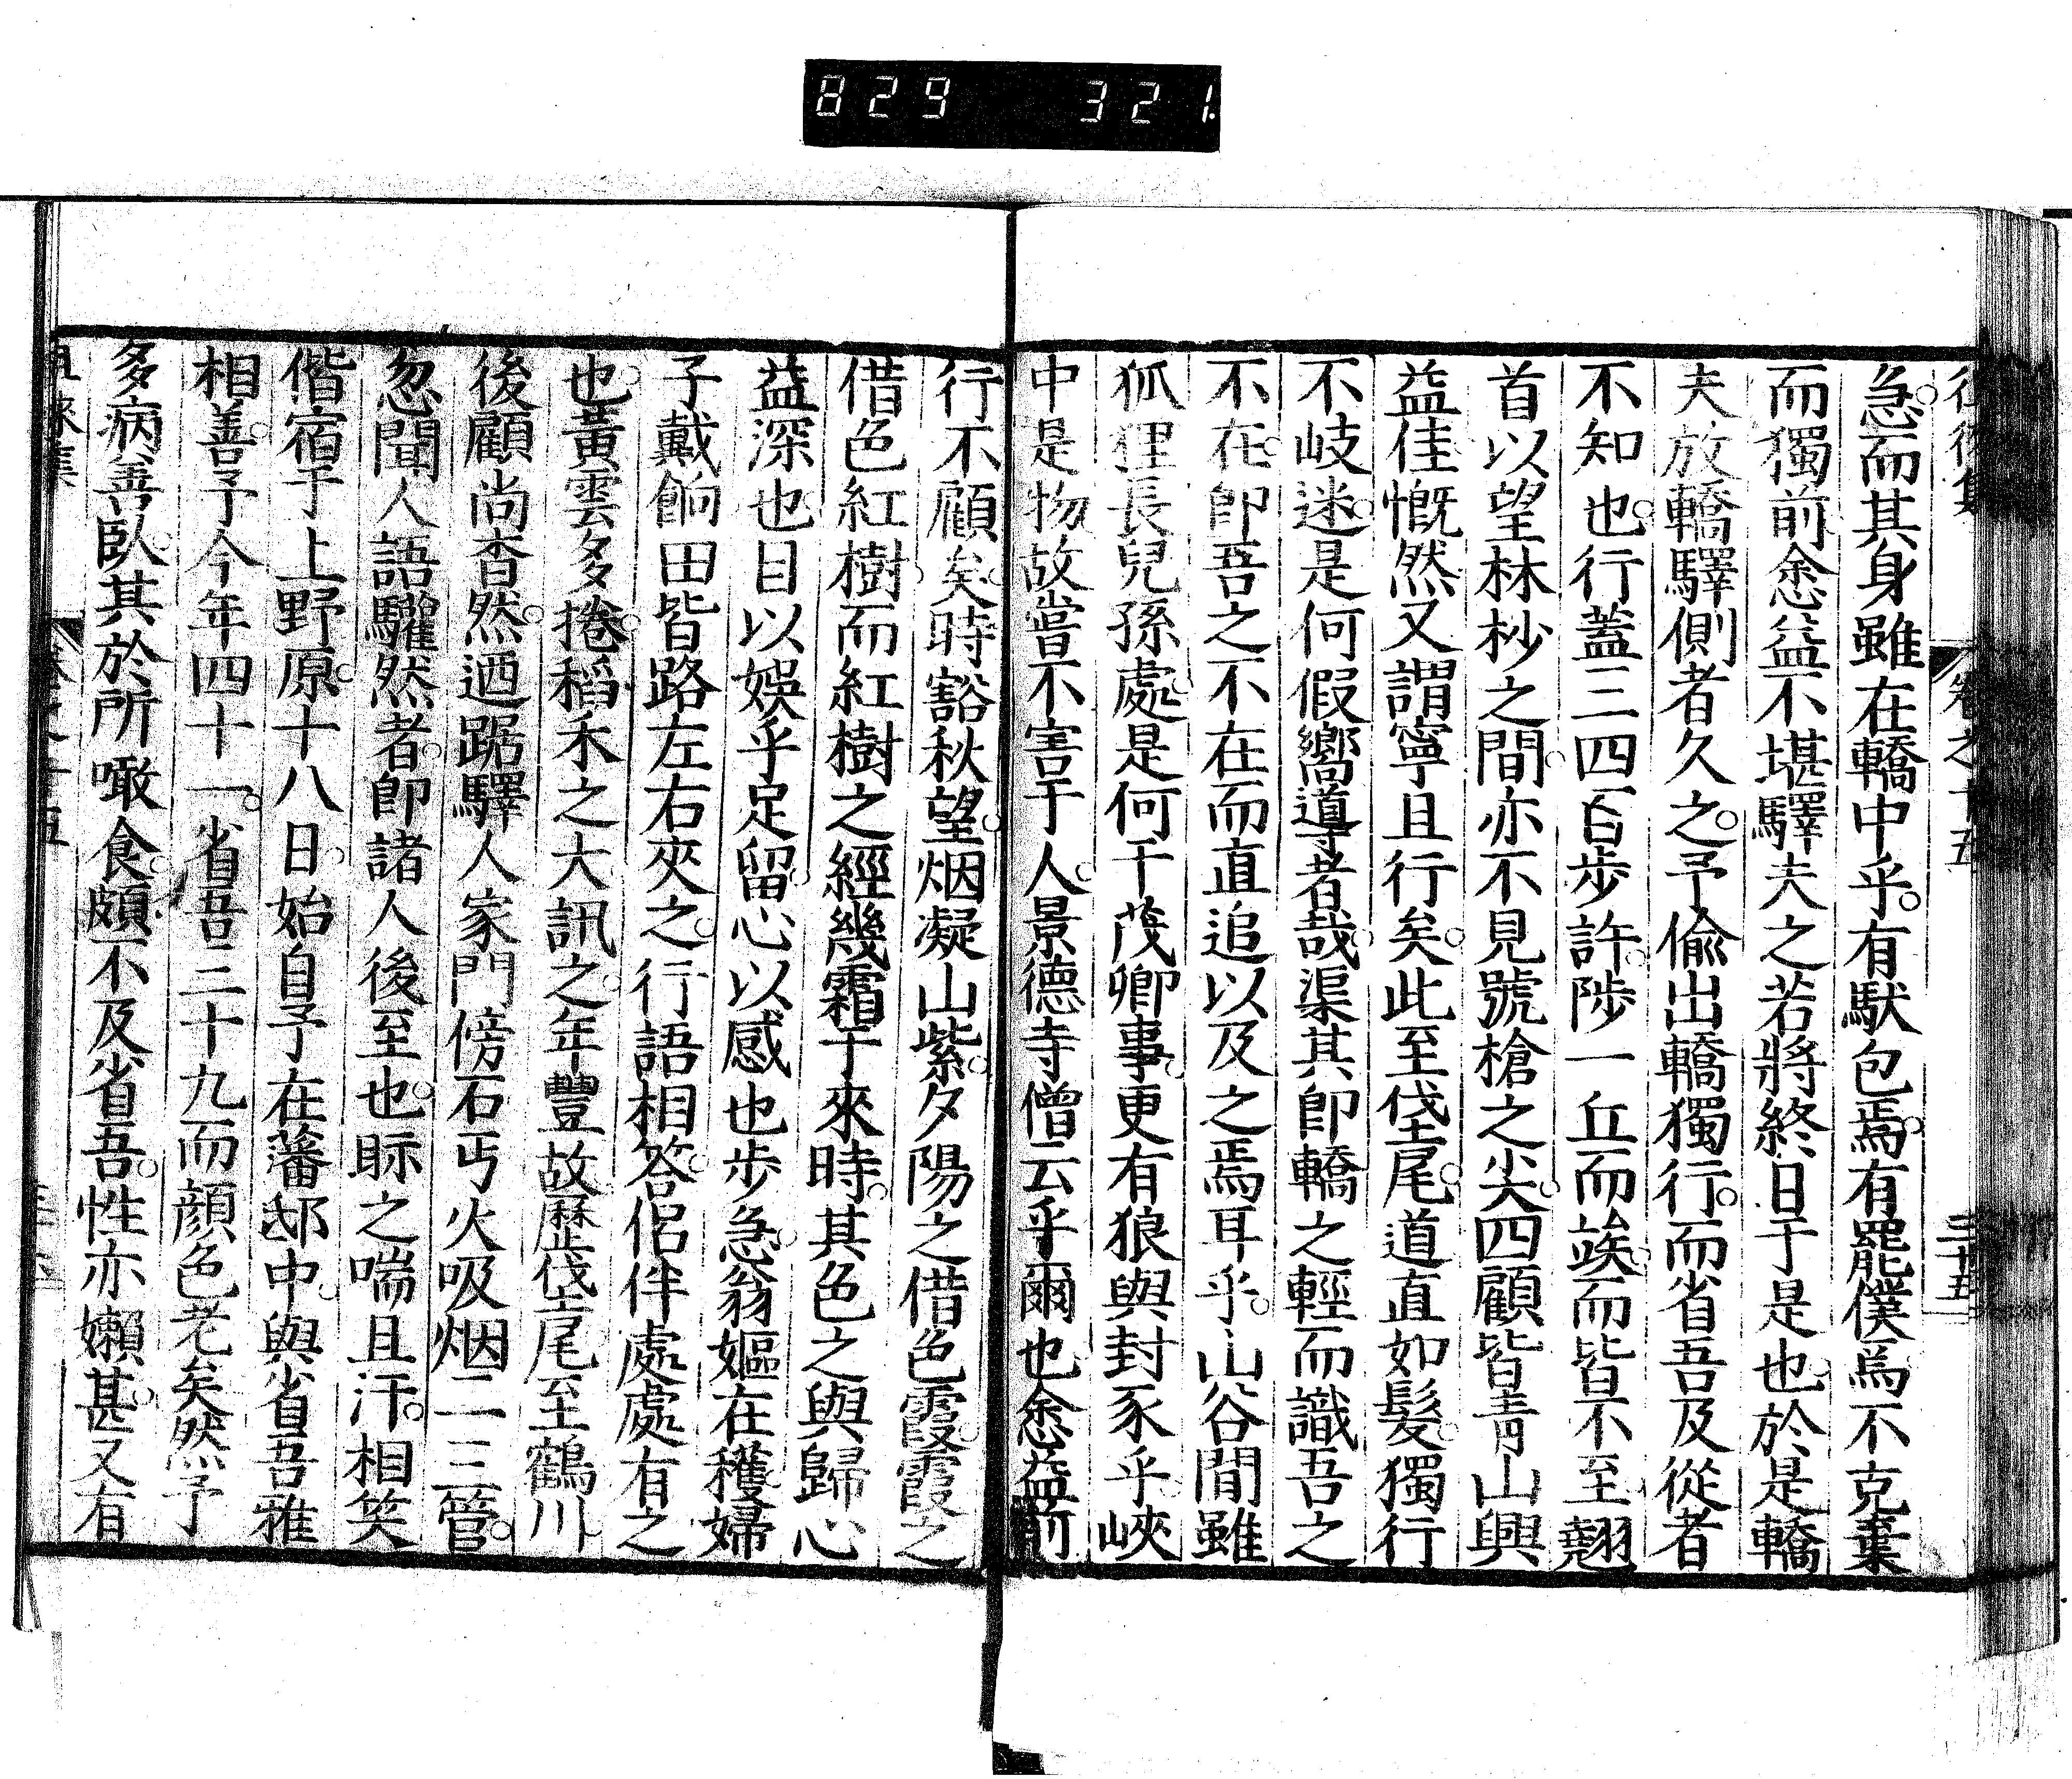 829 321.
卷之十五
三十五
急而其身雖在轎中乎。有馱包焉。有罷僕焉不克棄
而獨前悆益不堪驛夫之若將終日于是也於是轎
夫放轎驛側者久之。予偷出轎獨行。而省吾及從者
不知也。行蓋三四百步許。陟一丘而竢。而皆不至翹
首以望林杪之間。亦不見號槍之尖。四顧皆青山興
益佳慨然又謂寧且行矣。此至垡尾。道直如髮。獨行
不岐迷。是何假嚮導者哉。渠其即轎之輕而識吾之
不在。即吾之不在而直追以及之焉耳乎。山谷間雖
狐狸長兒孫處。是何干茂卿事。更有狼與封豕乎。峽
中是物故嘗不害于人。景德寺僧云乎爾也。悆益前
行不顧矣。時豁秋望。烟凝山紫。夕陽之借色霞。霞之
借色紅樹。而紅樹之經幾霜于來時。其色之與歸心
益深也。目以娛乎足留。心以感也步急。翁嫗在穫。婦
子戴餉。田皆路左右夾之。行語相答。侶伴處處有之
也。黃雲多捲。稻禾之大訊之。年豐故歷垡尾至鶴川。
後顧尚杳然。迺踞驛人家門傍石丐火吸烟二三管。
忽聞人語驩然者。即諸人後至也。眎之喘且汗。相笑
偕宿于上野原。十八日。始自予在藩邸中。與省吾雅
相善。予今年四十一。省吾三十九而顏色老矣然予
多病善臥。其於所噉食。頗不及省吾。性亦嬾甚。又有